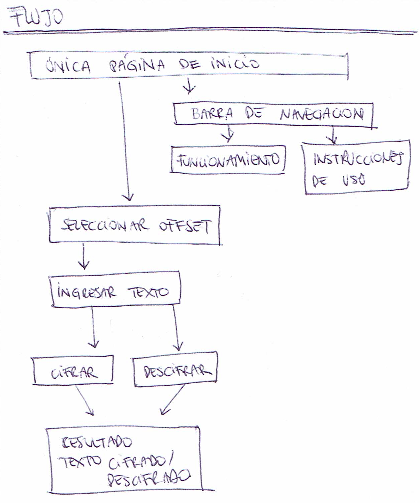 FLUJO
ÚNICA PÁGINA DE INICIO
BARRA DE NAVEGACION
FUNCIONAMIENTO
INSTRUCCIONES
DE USO
SELECCIONAR OFFSET
INGRESAR TEXTO
CIFRAR
DESCIFRAR
RESULTADO
TEXTO CIFRADO/
DESCIFRADO